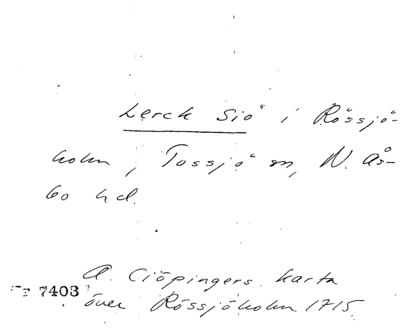 Lerck Siö i Rössjö-
holm, Tossjö sn, N. Ås-
bo hd.
A. Ciöpingers karta
7403
över Rössjöholm 1715.